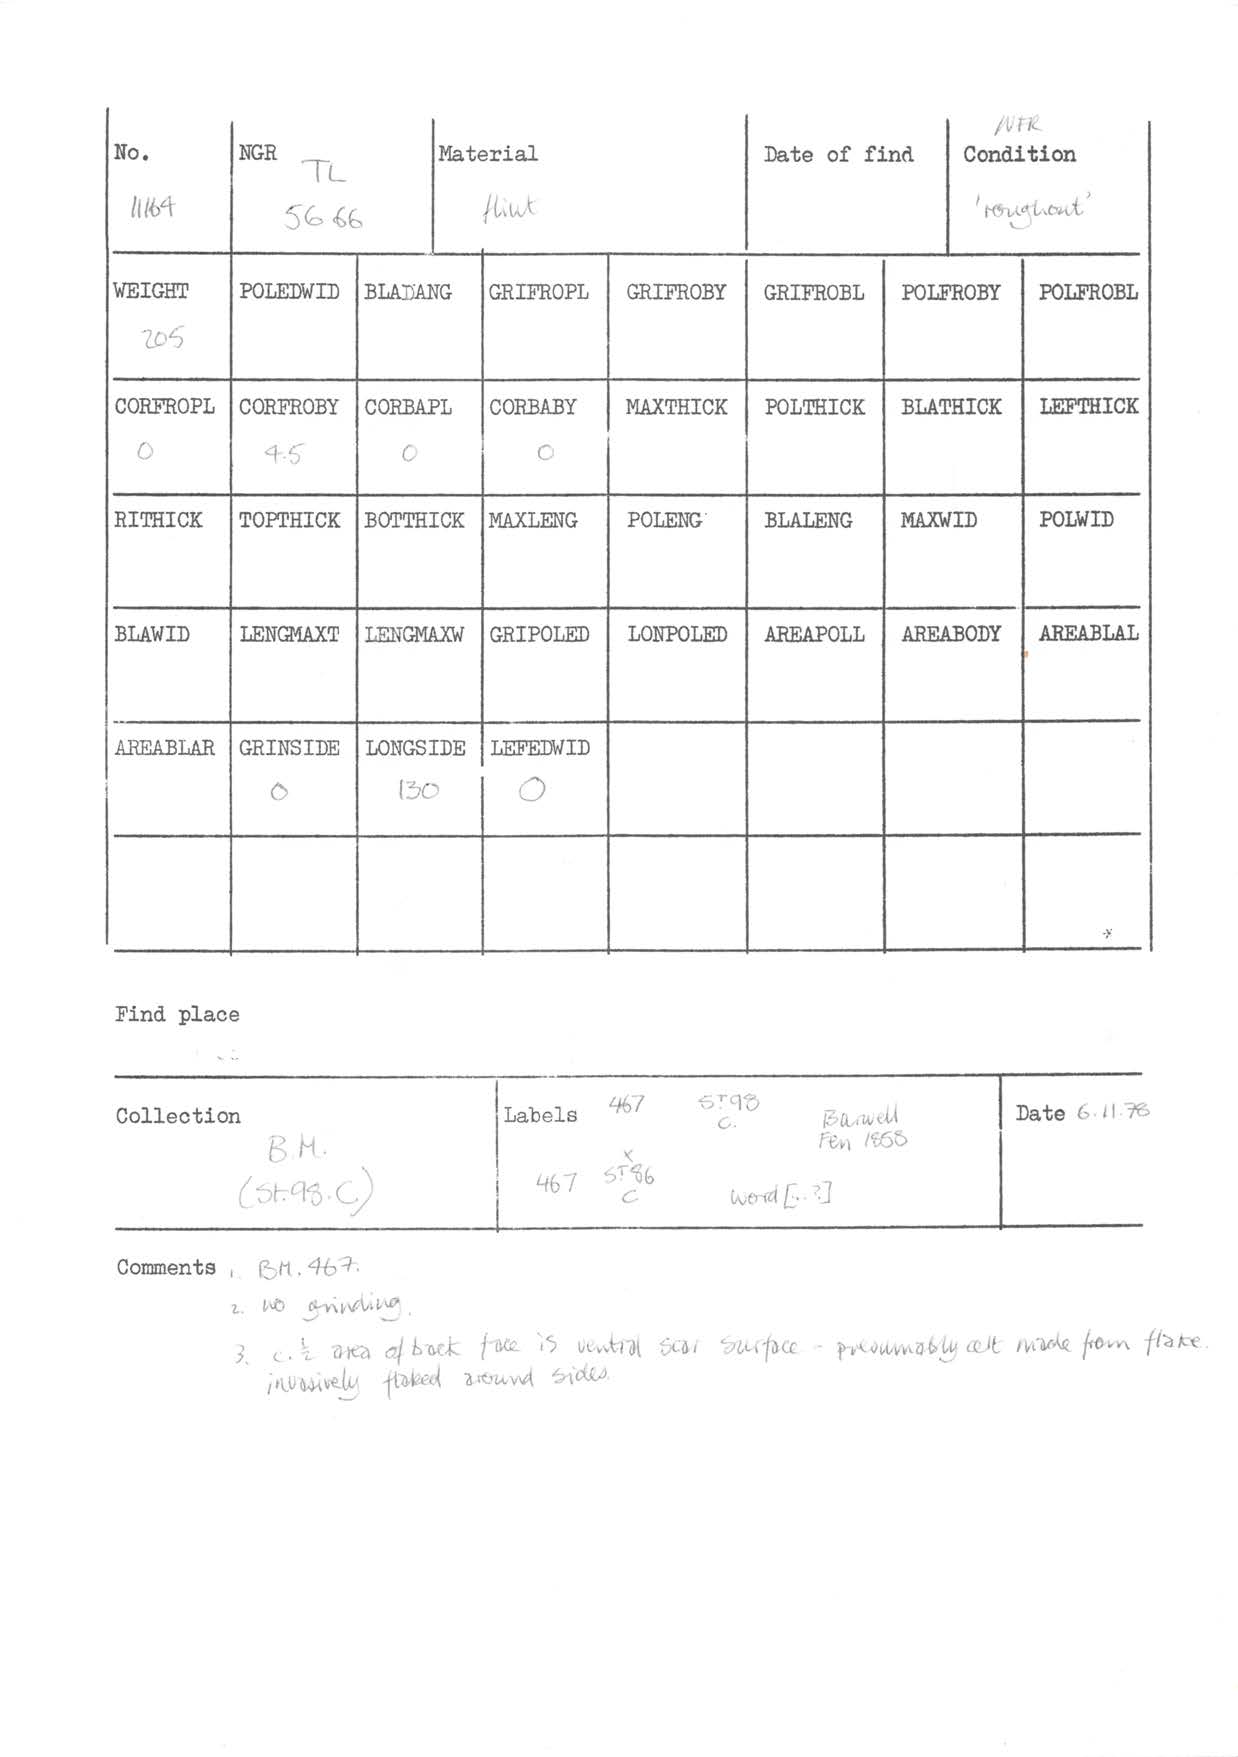 No. NGR Material Date of find Condition
TL
11164 5666 flint 'roughout'
WEIGHT POLEDWID BLADANG GRIFROPL GRIFROBY GRIFROBL POLFROBY POLFROBL
205
CORFROPL CORFROBY CORBAPL CORBABY MAXTHICK POLTHICK BLATHICK LEFTHICK
0 4.5 0 0
RITHICK TOPTHICK BOTTHICK MAXLENG POLENG BLALENG MAXWID POLWID
BLAWID LENGMAXT LENGMAXW GRIPOLED LONPOLED AREAPOLL AREABODY AREABLAL
AREABLAR GRINSIDE LONGSIDE LEFEDWID
0 130 0
Find place
Collection
B.M.
(St.98.C)
Labels 467 ST98 C.
Burwell
Fen 1858
467 X ST86 C
word [..?]
Date 6.11.78
Comments 1. BM.467.
2. no grinding.
3. c.½ area of back face is ventral scar surface - presumably celt made from flake.
invasively flaked around sides.